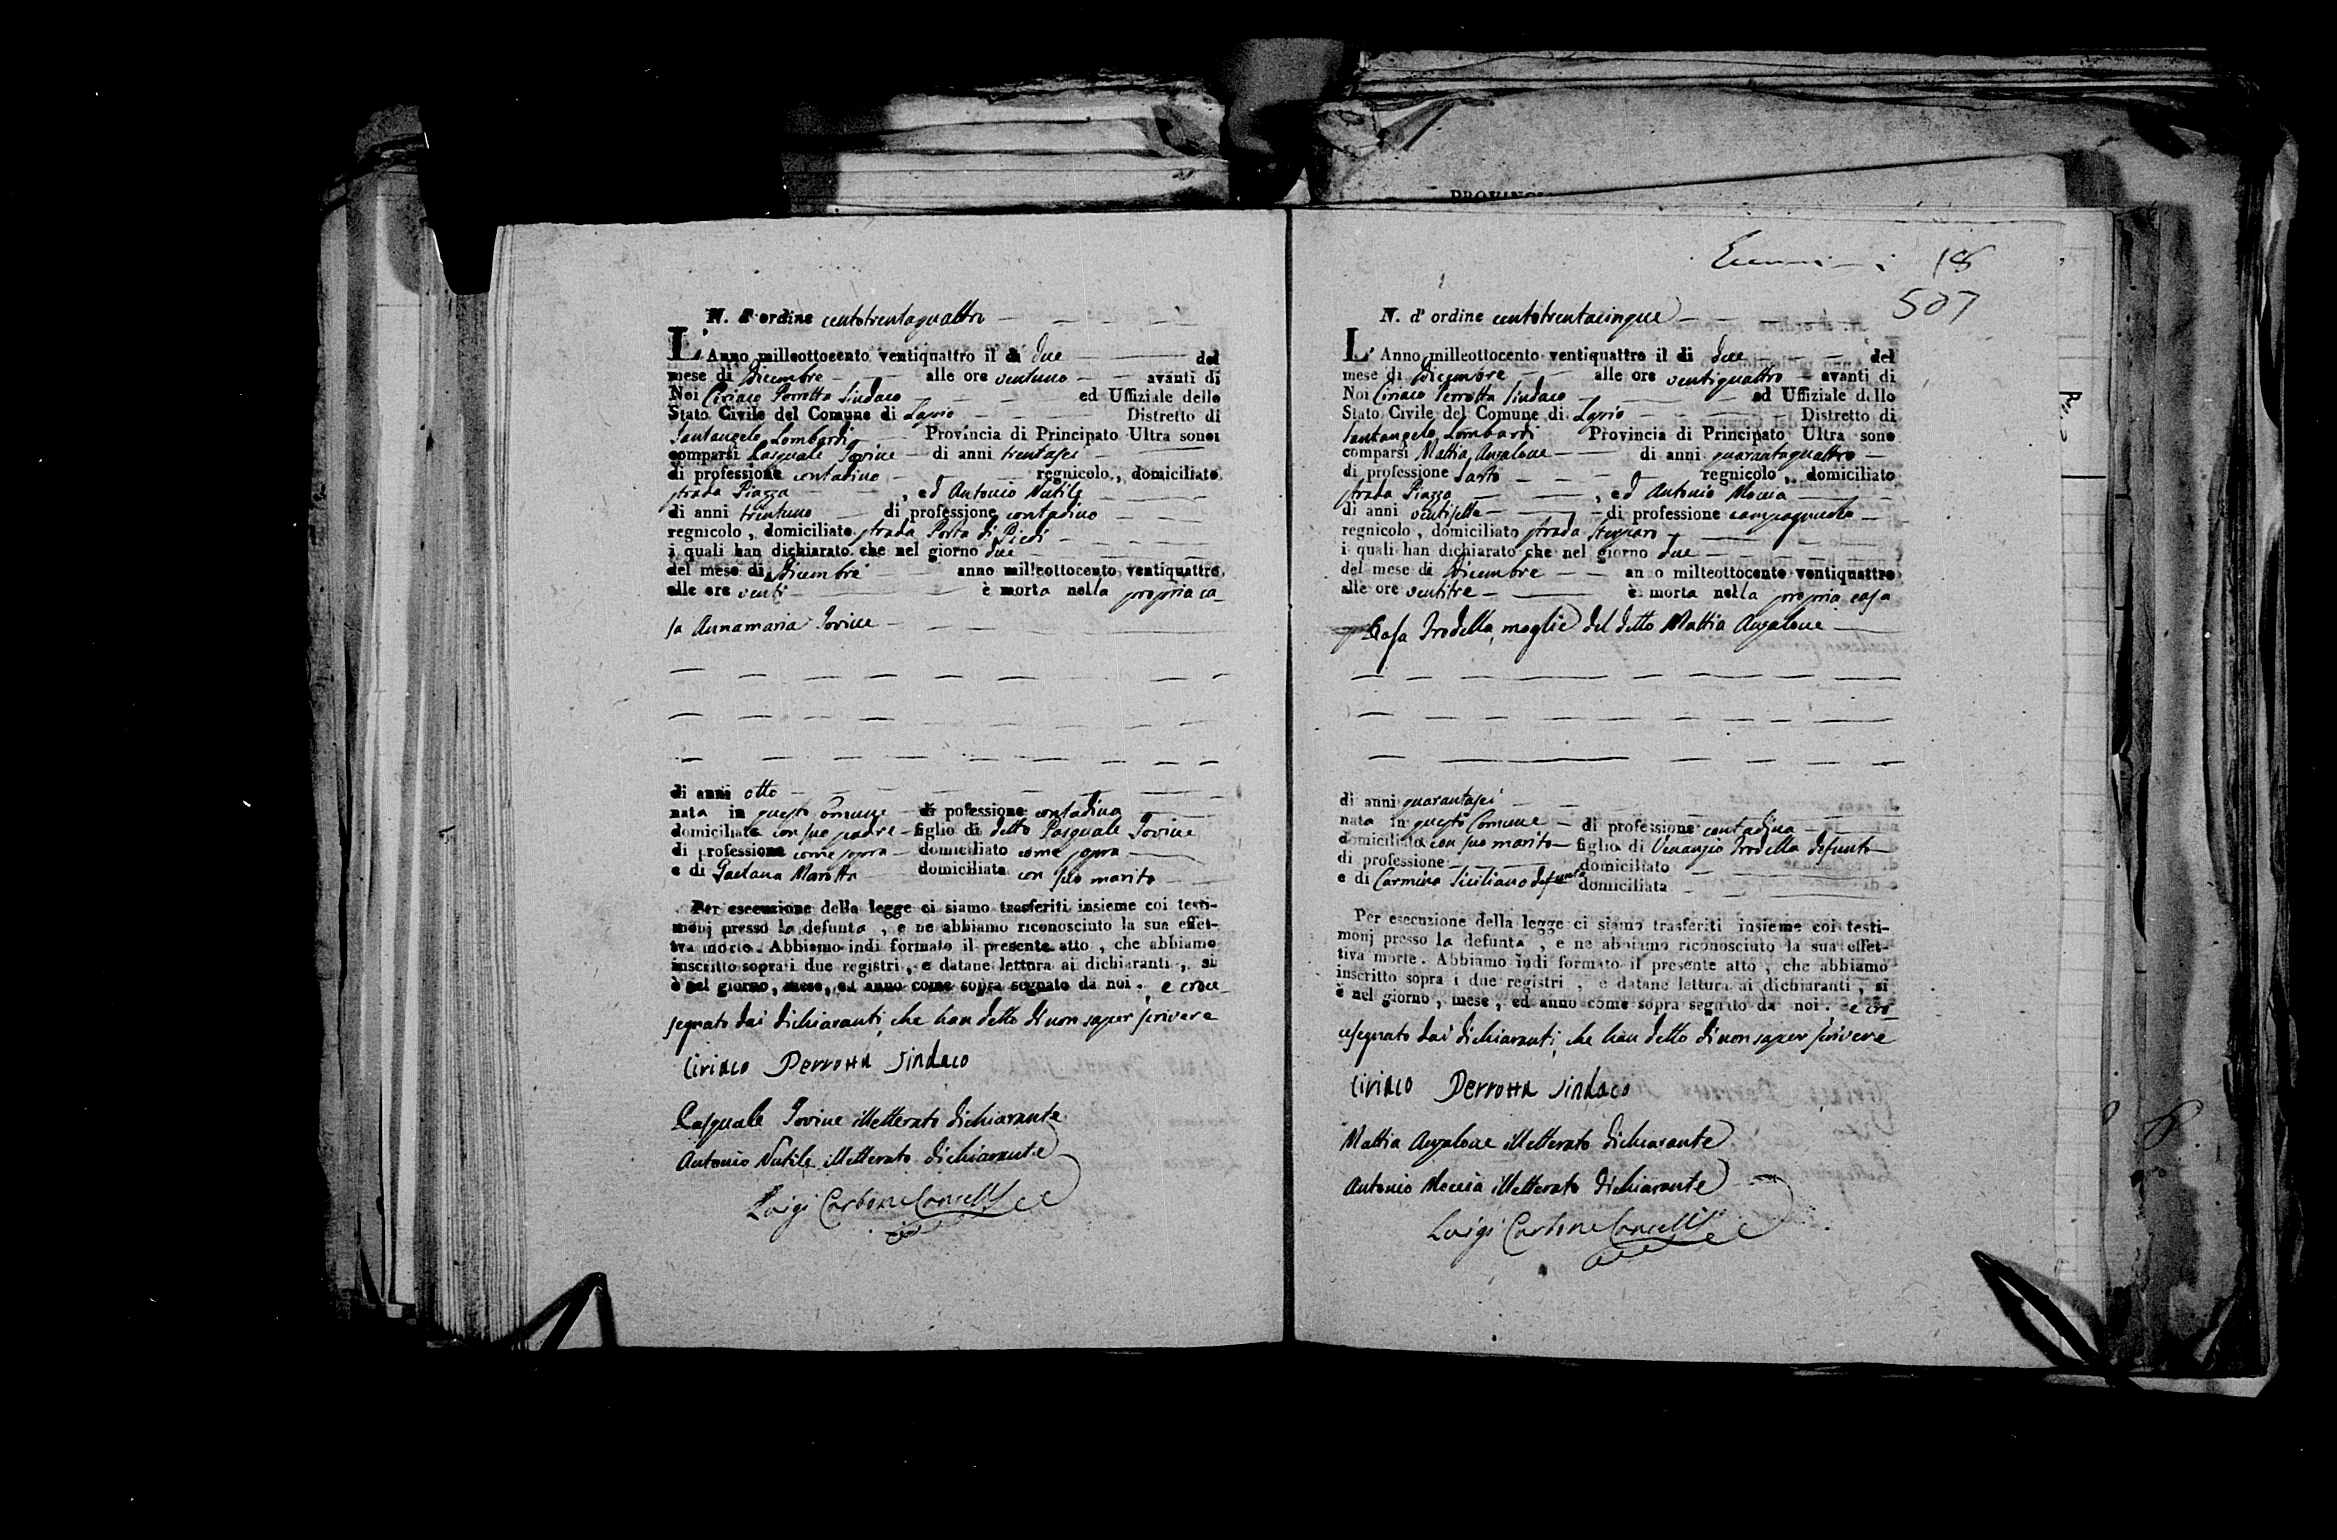 N. d'ordine centotrentaquattro
L'Anno milleottocento ventiquattro il dì due del
mese di Dicembre alle ore ventuno avanti di
Noi Ciriaco Perrotta Sindaco ed Uffiziale dello
Stato Civile del Comune di Lapio Distretto di
Santangelo Lombardi Provincia di Principato Ultra sonoi
comparsi Pasquale Iovine di anni trentasei
di professione contadino regnicolo, domiciliato
strada Piazza, ed Antonio Nutile
di anni trentuno di professione contadino
regnicolo, domiciliato strada Porta di Piedi
i quali han dichiarato che nel giorno due
del mese di Dicembre anno milleottocento ventiquattro
alle ore venti è morta nella propria ca-
sa Annamaria Iovine
di anni otto
nata in questo Comune di pofessione contadina
domiciliata con suo padre figlio di detto Pasquale Iovine
di professione come sopra domiciliato come sopra
e di Gaetana Marotta domiciliata con suo marito
Per esecuzione della legge ci siamo trasferiti insieme coi testi-
monj presso la defunta, e ne abbiamo riconosciuto la sua effet-
tiva morte. Abbiamo indi formato il presente atto, che abbiamo
inscritto sopra i due registri, e datane lettura ai dichiaranti, si
è nel giorno, mese, ed anno come sopra segnato da noi. e croce-
segnato dai dichiaranti, che han detto di non saper scrivere
Ciriaco Perrotta Sindaco
Pasquale Iovine illetterato dichiarante
Antonio Nutile illetterato dichiarante
Luigi Carbone Cancell
PROVINC
18
507
N. d' ordine centotrentacinque
L' Anno milleottocento ventiquattro il dì due del
mese di Dicembre alle ore ventiquattro avanti di
Noi Ciriaco Perrotta Sindaco ed Uffiziale dello
Stato Civile del Comune di Lapio Distretto di
Santangelo Lombardi Provincia di Principato Ultra sono
comparsi Mattia Anzalone di anni quarantaquattro
di professione Sarto regnicolo, domiciliato
strada Piazza, ed Antonio Moccia
di anni ventisette di professione campagnuolo
regnicolo, domiciliato strada
i quali han dichiarato che nel giorno due
del mese di Dicembre an o milleottocento ventiquattro
alle ore ventitre è morta nella propria casa
Rosa Trodella, moglie del detto Mattia Anzalone
di anni quarantasei
nata in questo Comune di professione contadina
domiciliata con suo marito figlia di Venanzio Trodella defunto
di professione domiciliato
e di Carmina Siciliano defunta domiciliata
Per esecuzione della legge ci siamo trasferiti insieme coi testi-
monj presso la defunta, e ne abbiamo riconosciuto la sua effet-
tiva morte. Abbiamo indi formato il presente atto, che abbiamo
inscritto sopra i due registri, e datane lettura ai dichiaranti, si
è nel giorno, mese, ed anno come sopra segnato da noi. e cro-
cesegnato dai dichiaranti, che han detto di non saper scrivere
Ciriaco Perrotta Sindaco
Mattia Anzalone illetterato dichiarante
Antonio Moccia illetterato dichiarante
Luigi Carbone Cancell